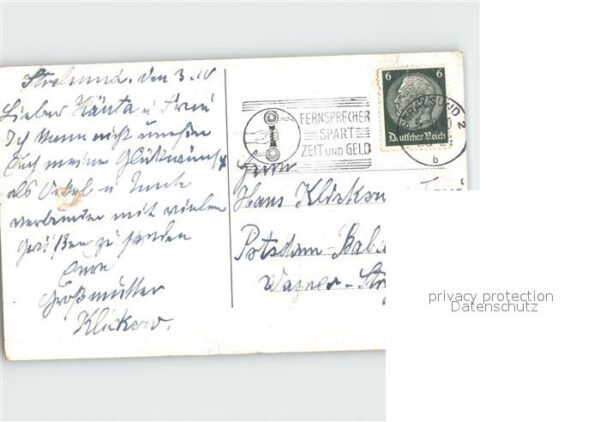 Stralsund. den 3.10
Lieber Hänta u Frau
Ich kann nicht umhin
Euch meine Glückwünsche
als Onkel u Tante
verbunden mit vielen
Grüßen zu senden
Eure
Großmutter
Klickow.
FERNSPRECHER
SPART
ZEIT UND GELD
6 6
Deutsches Reich
STRALSUND 2
b
Herrn
Hans Klickow
Potsdam-Babe
Wagner-Str
privacy protection
Datenschutz